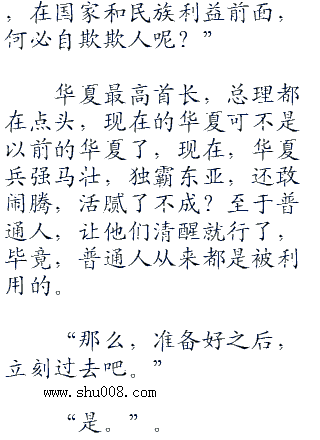 ，在国家和民族利益前面，
何必自欺欺人呢？”
华夏最高首长，总理都
在点头，现在的华夏可不是
以前的华夏了，现在，华夏
兵强马壮，独霸东亚，还敢
闹腾，活腻了不成？至于普
通人，让他们清醒就行了，
毕竟，普通人从来都是被利
用的。
“那么，准备好之后，
立刻过去吧。”
www.shu008.com
“是。”。